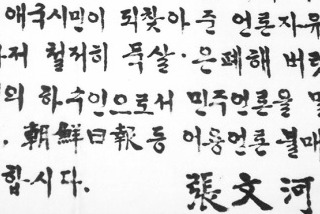 애국시민이 되찾아 준 언론자유
저 철저히 묵살·은폐해 버렸
의 하수인으로서 민주언론을 말
. 朝鮮日報 등 어용언론 불매
합시다.
張文河